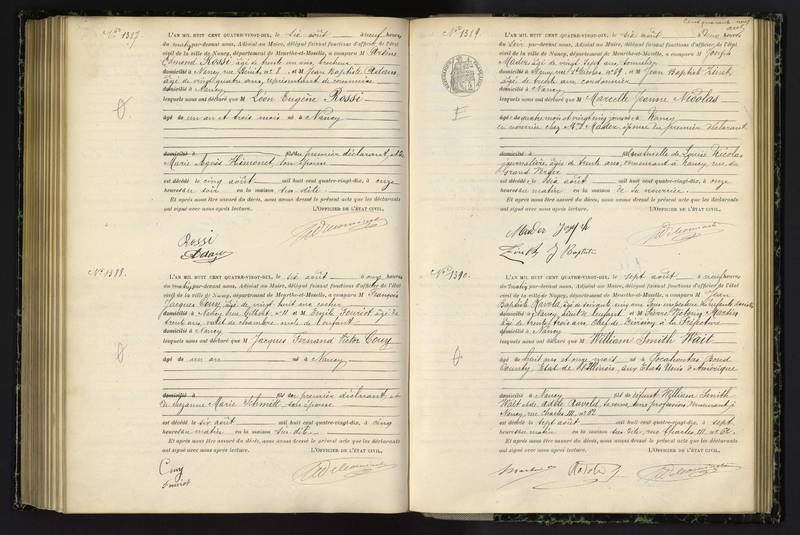 N° 1387.
L'AN MIL HUIT CENT QUATRE-VINGT-DIX, le six août à neuf heures
du matin par-devant nous, Adjoint au Maire, délégué faisant fonctions d'officier de l'état
civil de la ville de Nancy, département de Meurthe-et-Moselle, a comparu M
Edmond Rossi, âgé de trente un ans,
domicilié à Nancy, rue n° 8 et M Jean Baptiste Adam
âgé de vingt quatre ans, représentant de commerce
domicilié à Nancy
lesquels nous ont déclaré que M Léon Eugène Rossi
âgé de un an et trois mois né à Nancy
domicilié à fils du premier déclarant, et de
Marie Agnès Hémonet, son épouse
est décédé le cinq août mil huit cent quatre-vingt-dix, à onze
heures du soir en la maison sus dite
Et après nous être assuré du décès, nous avons dressé le présent acte que les déclarants
ont signé avec nous après lecture. L'OFFICIER DE L'ÉTAT CIVIL,
Rossi
Adam
N° 1388.
L'AN MIL HUIT CENT QUATRE-VINGT-DIX, le six août à onze heures
du matin par-devant nous, Adjoint au Maire, délégué faisant fonctions d'officier de l'état
civil de la ville de Nancy, département de Meurthe-et-Moselle, a comparu M François
Jacques Couy âgé de vingt huit ans cocher
domicilié à Nancy, rue n° 11 et M Emile Fouriot âgé de
trente ans, valet de chambre de l'enfant
domicilié à Nancy
lesquels nous ont déclaré que M Jacques Fernand Victor Couy
âgé de un an né à Nancy
domicilié à fils du premier déclarant, et
de Suzanne Marie Schmitt son épouse
est décédé le six août mil huit cent quatre-vingt-dix, à cinq
heures du matin en la maison sus dite
Et après nous être assuré du décès, nous avons dressé le présent acte que les déclarants
ont signé avec nous après lecture. L'OFFICIER DE L'ÉTAT CIVIL,
Couy
Fouriot
Cent quarante neuf
N° 1389.
L'AN MIL HUIT CENT QUATRE-VINGT-DIX, le six août à deux heures
du soir par-devant nous, Adjoint au Maire, délégué faisant fonctions d'officier de l'état
civil de la ville de Nancy, département de Meurthe-et-Moselle, a comparu M Joseph
Mader âgé de vingt sept ans,
domicilié à Nancy, rue St Nicolas n° 69 et M Jean Baptiste
âgé de trente ans, cordonnier
domicilié à Nancy
lesquels nous ont déclaré que M Marcelle Jeanne Nicolas
âgé de quatre mois et vingt cinq jours né à Nancy
en nourrice chez Mme Mader, épouse du premier déclarant
domicilié à fille naturelle de Louise Nicolas
journalière, âgée de trente ans, demeurant à Nancy, rue du
Grand Verger
est décédé le six août mil huit cent quatre-vingt-dix, à onze
heures du matin en la maison de la nourrice
Et après nous être assuré du décès, nous avons dressé le présent acte que les déclarants
ont signé avec nous après lecture. L'OFFICIER DE L'ÉTAT CIVIL,
Mader Joseph
J Baptiste
N° 1390.
L'AN MIL HUIT CENT QUATRE-VINGT-DIX, le sept août à neuf heures
du matin par-devant nous, Adjoint au Maire, délégué faisant fonctions d'officier de l'état
civil de la ville de Nancy, département de Meurthe-et-Moselle, a comparu M Jean
Baptiste Ravold âgé de soixante cinq ans, Sous inspecteur des enfants assistés
domicilié à Nancy, aïeul de l'enfant et M Pierre Victor Martin
âgé de trente trois ans, Chef de Division à la Préfecture
domicilié à Nancy
lesquels nous ont déclaré que M William Smith Wait
âgé de huit ans et onze mois né à Pocahontas Bond
County, Etat de l'Illinois, aux Etats Unis d'Amérique
domicilié à Nancy fils de défunt William Smith
Wait et de Adèle Ravold, sa veuve, sans profession, demeurant à
Nancy, rue Charles III, n° 82
est décédé le sept août mil huit cent quatre-vingt-dix, à sept
heures du matin en la maison sus dite, rue Charles III, n° 82
Et après nous être assuré du décès, nous avons dressé le présent acte que les déclarants
ont signé avec nous après lecture. L'OFFICIER DE L'ÉTAT CIVIL,
Martin Ravold